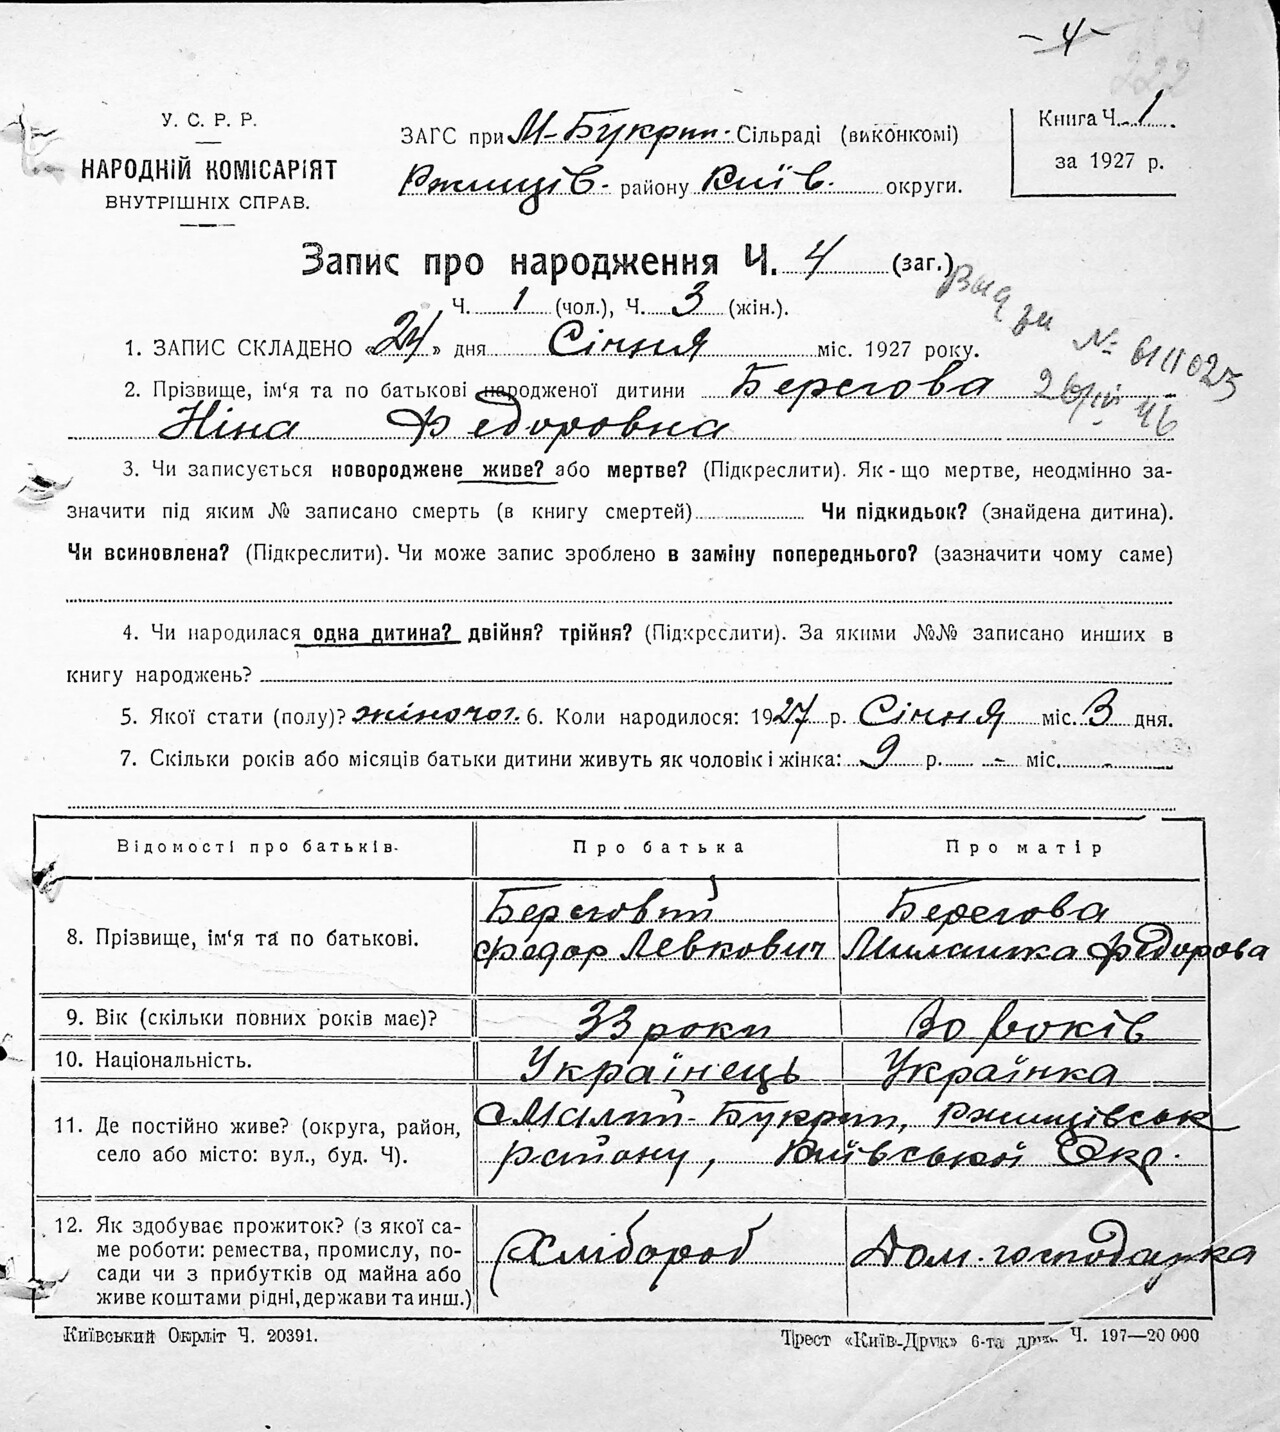 - 4 -
222
У. С. Р. Р.
НАРОДНІЙ КОМІСАРІЯТ
ВНУТРІШНІХ СПРАВ.
ЗАГС при М-Букрин. Сільраді (виконкомі)
Ржищів. району Київ. округи.
Книга Ч. 1.
за 1927 р.
Запис про народження Ч. 4 (заг.)
Ч. 1 (чол.), Ч. 3 (жін.).
1. ЗАПИС СКЛАДЕНО «24» дня Січня міс. 1927 року.
№
2. Прізвище, ім‘я та по батькові народженої дитини Берегова
Ніна Федоровна
46
3. Чи записується новороджене живе? або мертве? (Підкреслити). Як-що мертве, неодмінно за-
значити під яким № записано смерть (в книгу смертей) Чи підкидьок? (знайдена дитина).
Чи всиновлена? (Підкреслити). Чи може запис зроблено в заміну попереднього? (зазначити чому саме)
4. Чи народилася одна дитина? двійня? трійня? (Підкреслити). За якими №№ записано инших в
книгу народжень?
5. Якої стати (полу)? жіночої. 6. Коли народилося: 1927 р. Січня міс. 3 дня.
7. Скільки років або місяців батьки дитини живуть як чоловік і жінка: 9 р. - міс. -
Відомості про батьків. Про батька Про матір
8. Прізвище, ім‘я та по батькові. Береговий Берегова
Федор Левкович Миланка Федорова
9. Вік (скільки повних років має)? 33 роки 30 років
10. Національність. Українець Українка
11. Де постійно живе? (округа, район,
село або місто: вул., буд. Ч). с Малий-Букрин, Ржищівськ
району, Київської Окр.
12. Як здобуває прожиток? (з якої са-
ме роботи: ремества, промислу, по-
сади чи з прибутків од майна або
живе коштами рідні, держави та инш.) Хлібороб Дом. господарка
Київський Окрліт Ч. 20391.
Трест «Київ-Друк» 6-та друк. Ч. 197—20 000